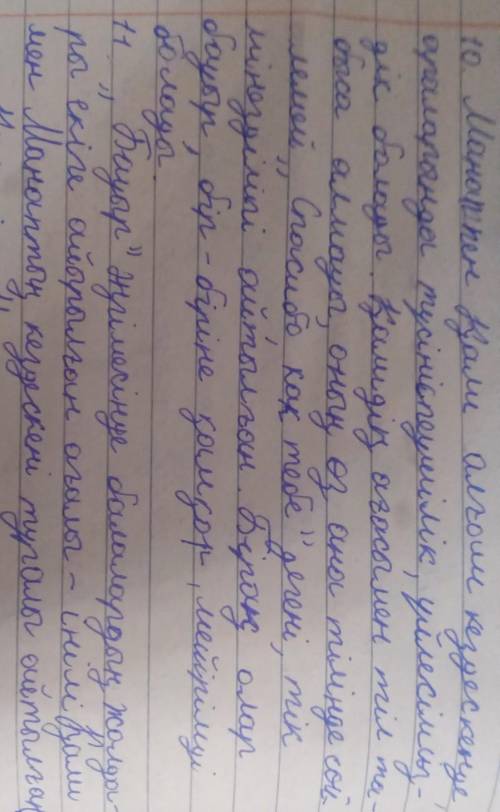 10. Манаптың Қали алғаш кездескенде
араларында түсініспеушілік, үйлесімді-
дік болады. Қалидің ағасымен тіл та
баса алмауы, оның өз ана тілінде сөй
лемей "Спасибо как тебе" дегені, тік
мінезділігі айтылған. Бірақ олар
бауыр, бір-біріне қамқор, мейірімді
болады.
11. "Бауыр" әңгімесінде балалардың жолда-
ры екіге айырылған ағалы-інілі Қали
мен Манаптың кездескені туралы айтылған